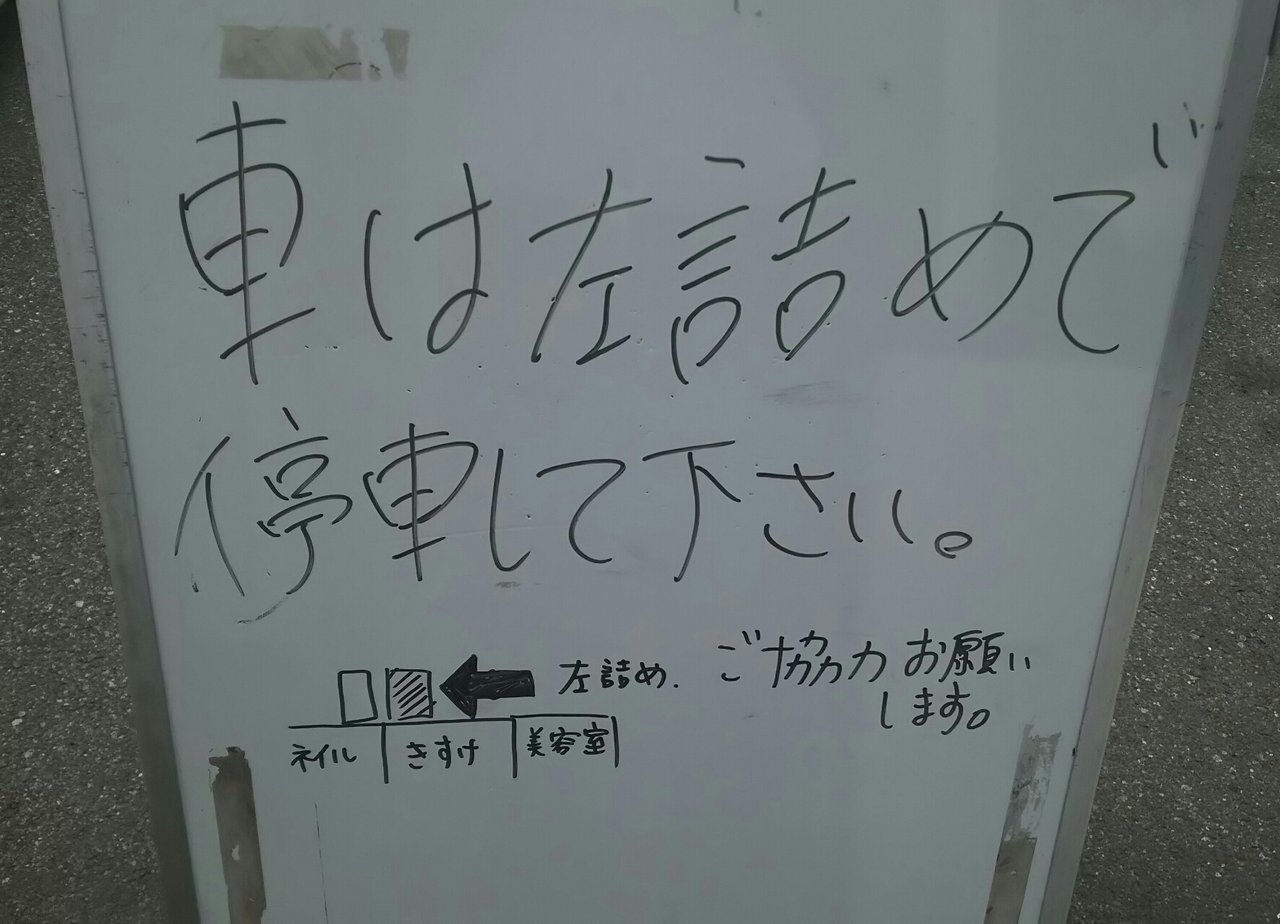 車は左詰めで
停車して下さい。
左詰め. ご協力お願い
します。
ネイル きすけ 美容室